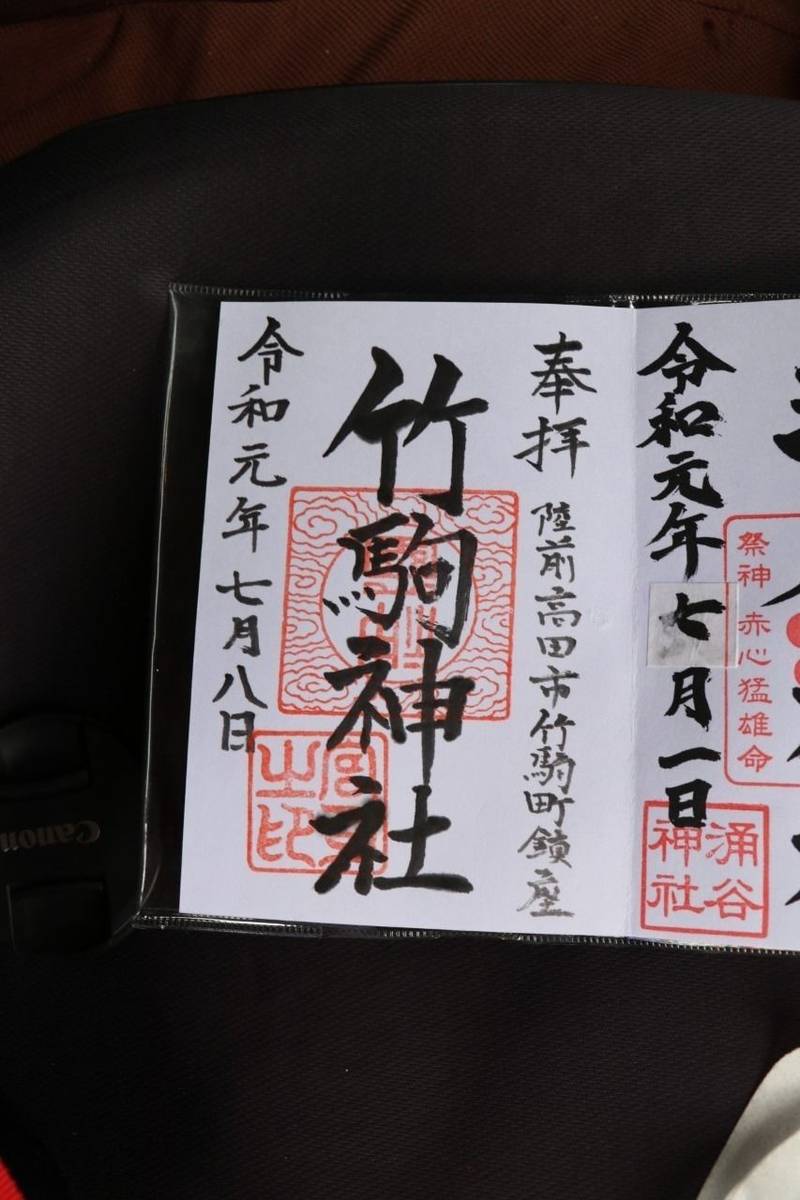 祭神 赤心猛雄命
令和元年七月一日
涌谷
神社
奉拝
陸前高田市竹駒町鎮座
竹駒神社
令和元年七月八日
Canon